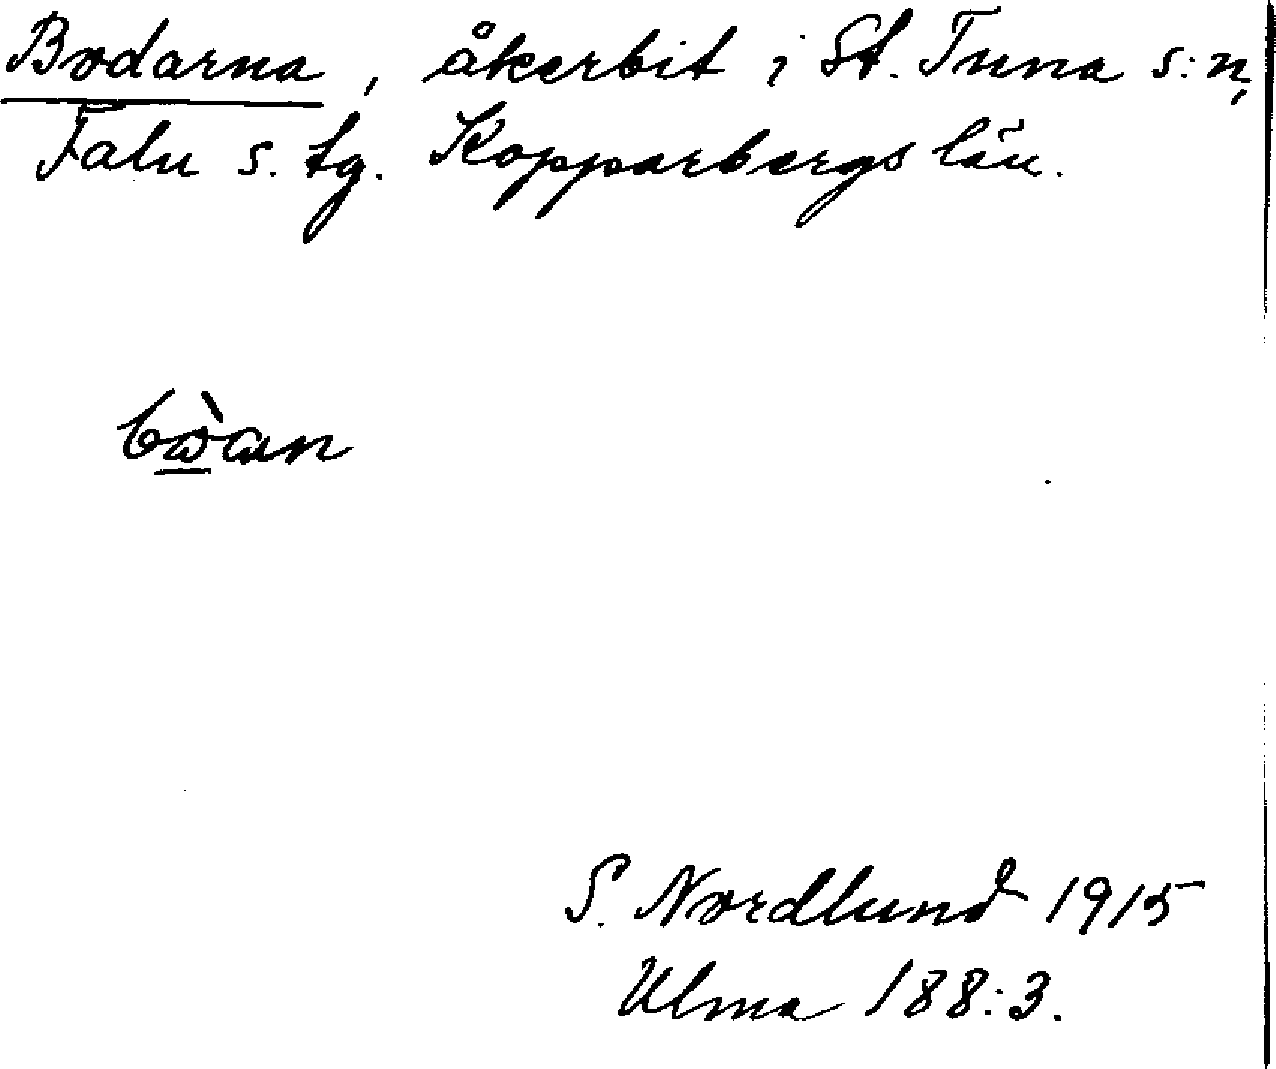 Bodarna, åkerbit i St. Tuna s:n,
Falu s. tg. Kopparbergs län.
bὼ̲an
S. Nordlund 1915
Ulma 188:3.